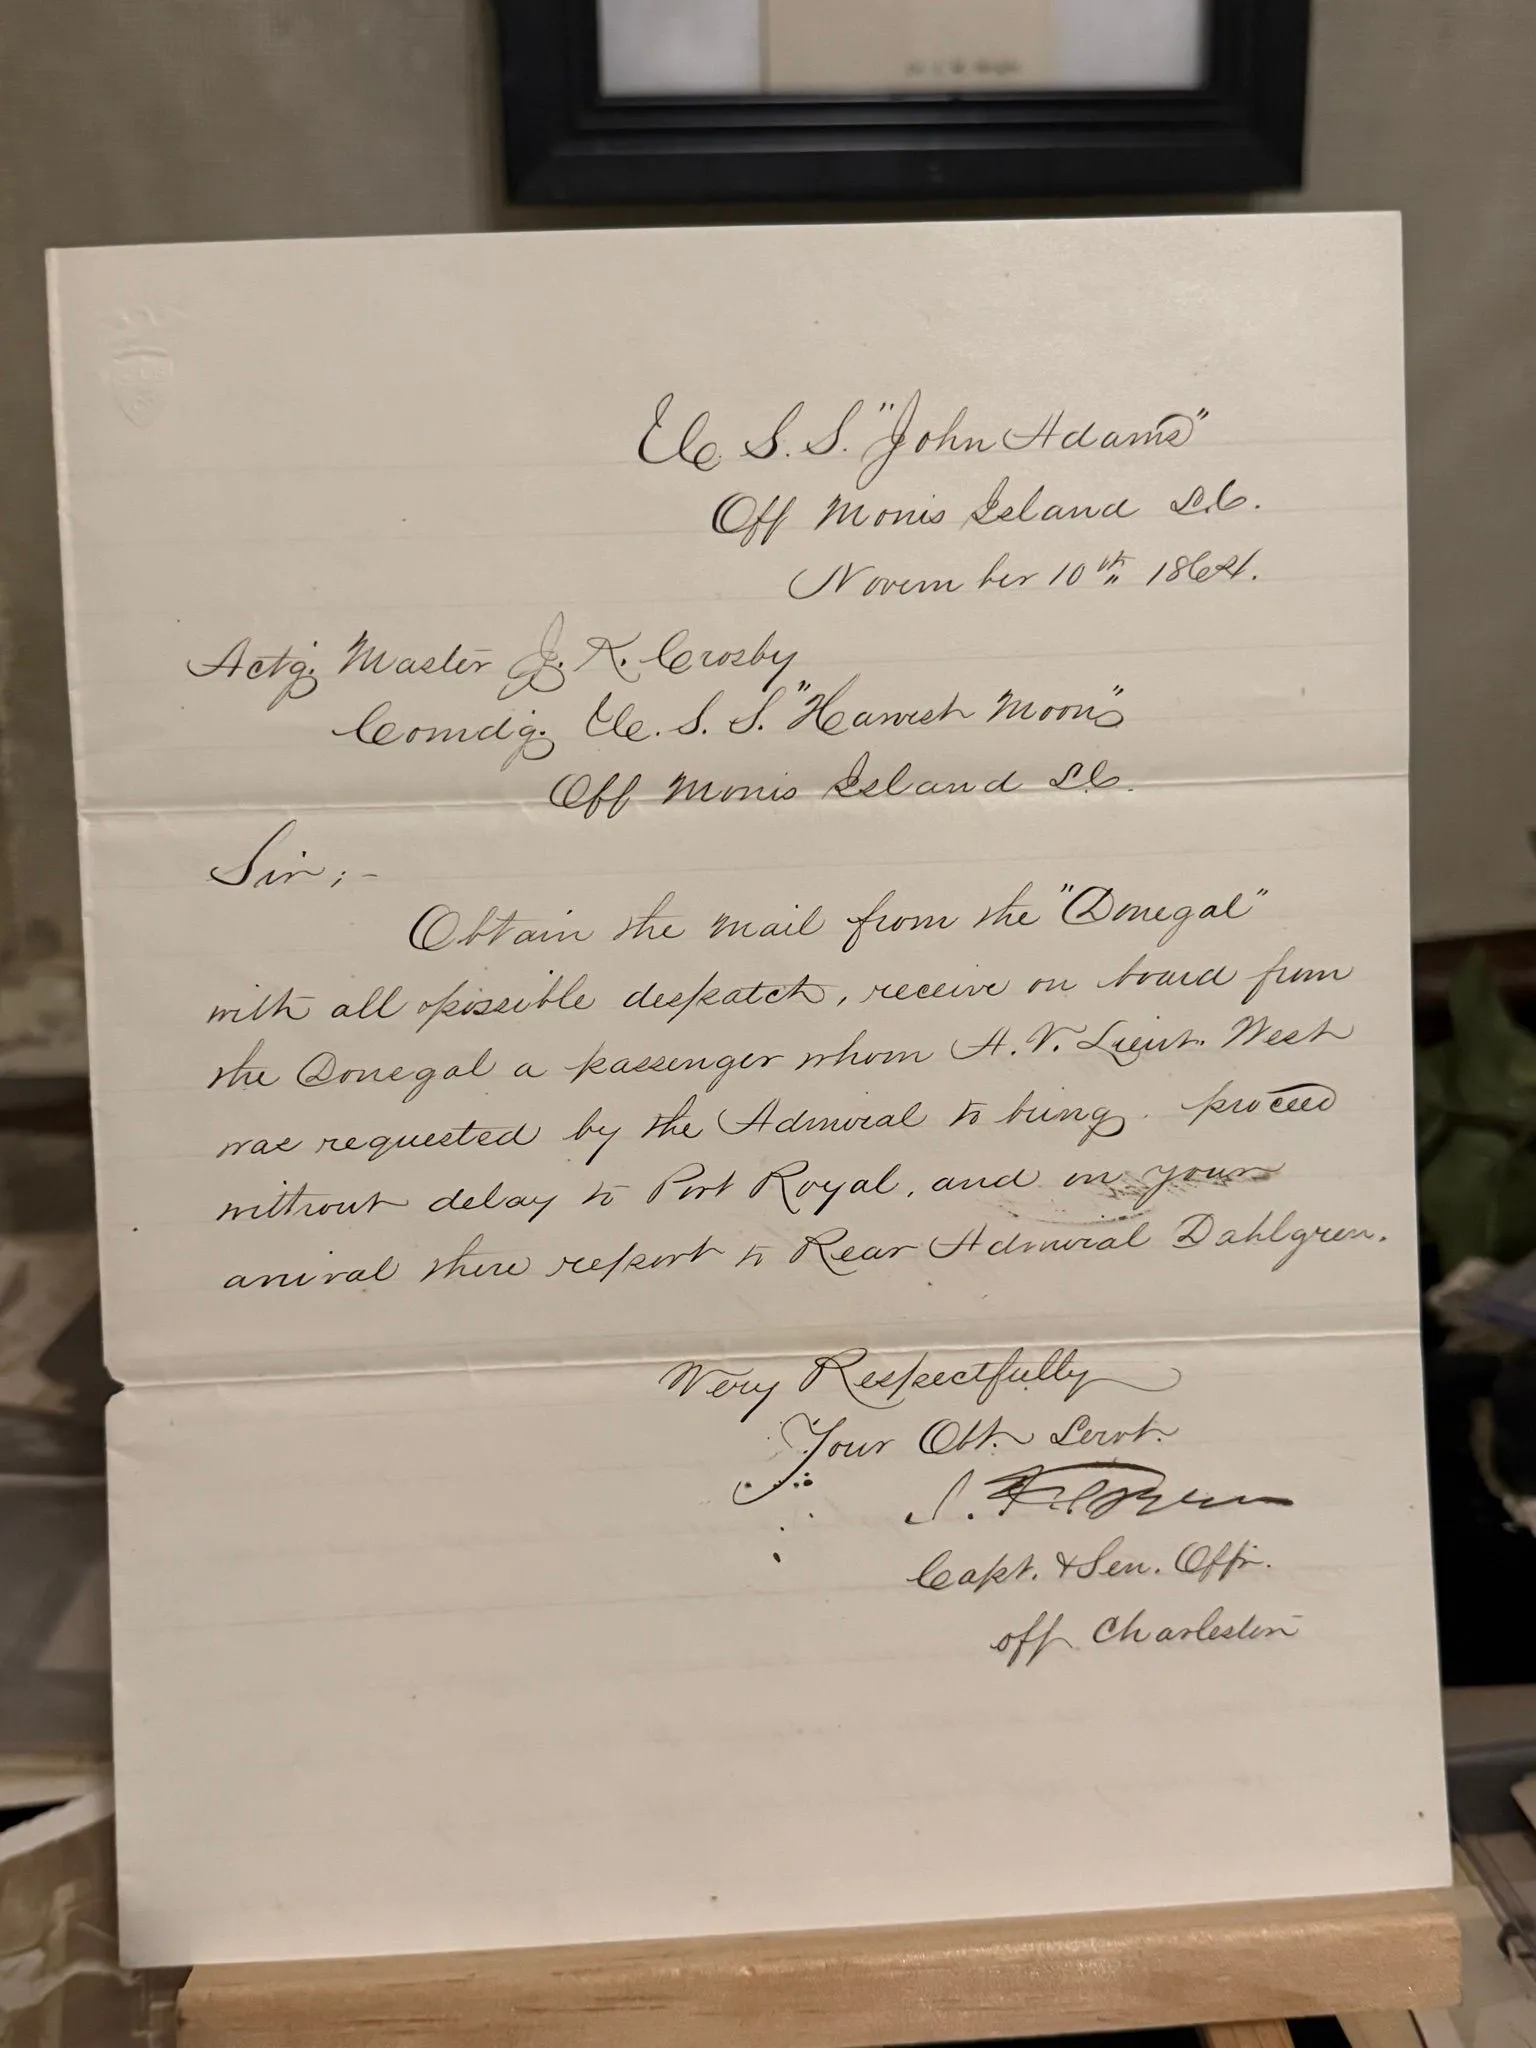 U. S. S. "John Adams"
Off Morris Island S.C.
November 10th 1864.
Actg. Master J. K. Crosby
Comdg. U. S. S. "Harvest Moon"
Off Morris Island S.C.
Sir;-
Obtain the mail from the "Donegal"
with all possible despatch, receive on board from
the Donegal a passenger whom A. V. Lieut. West
was requested by the Admiral to bring. proceed
without delay to Port Royal, and on your
arrival there report to Rear Admiral Dahlgren.
Very Respectfully
Your Obt. Servt.
Capt. & Sen. Offr.
off Charleston